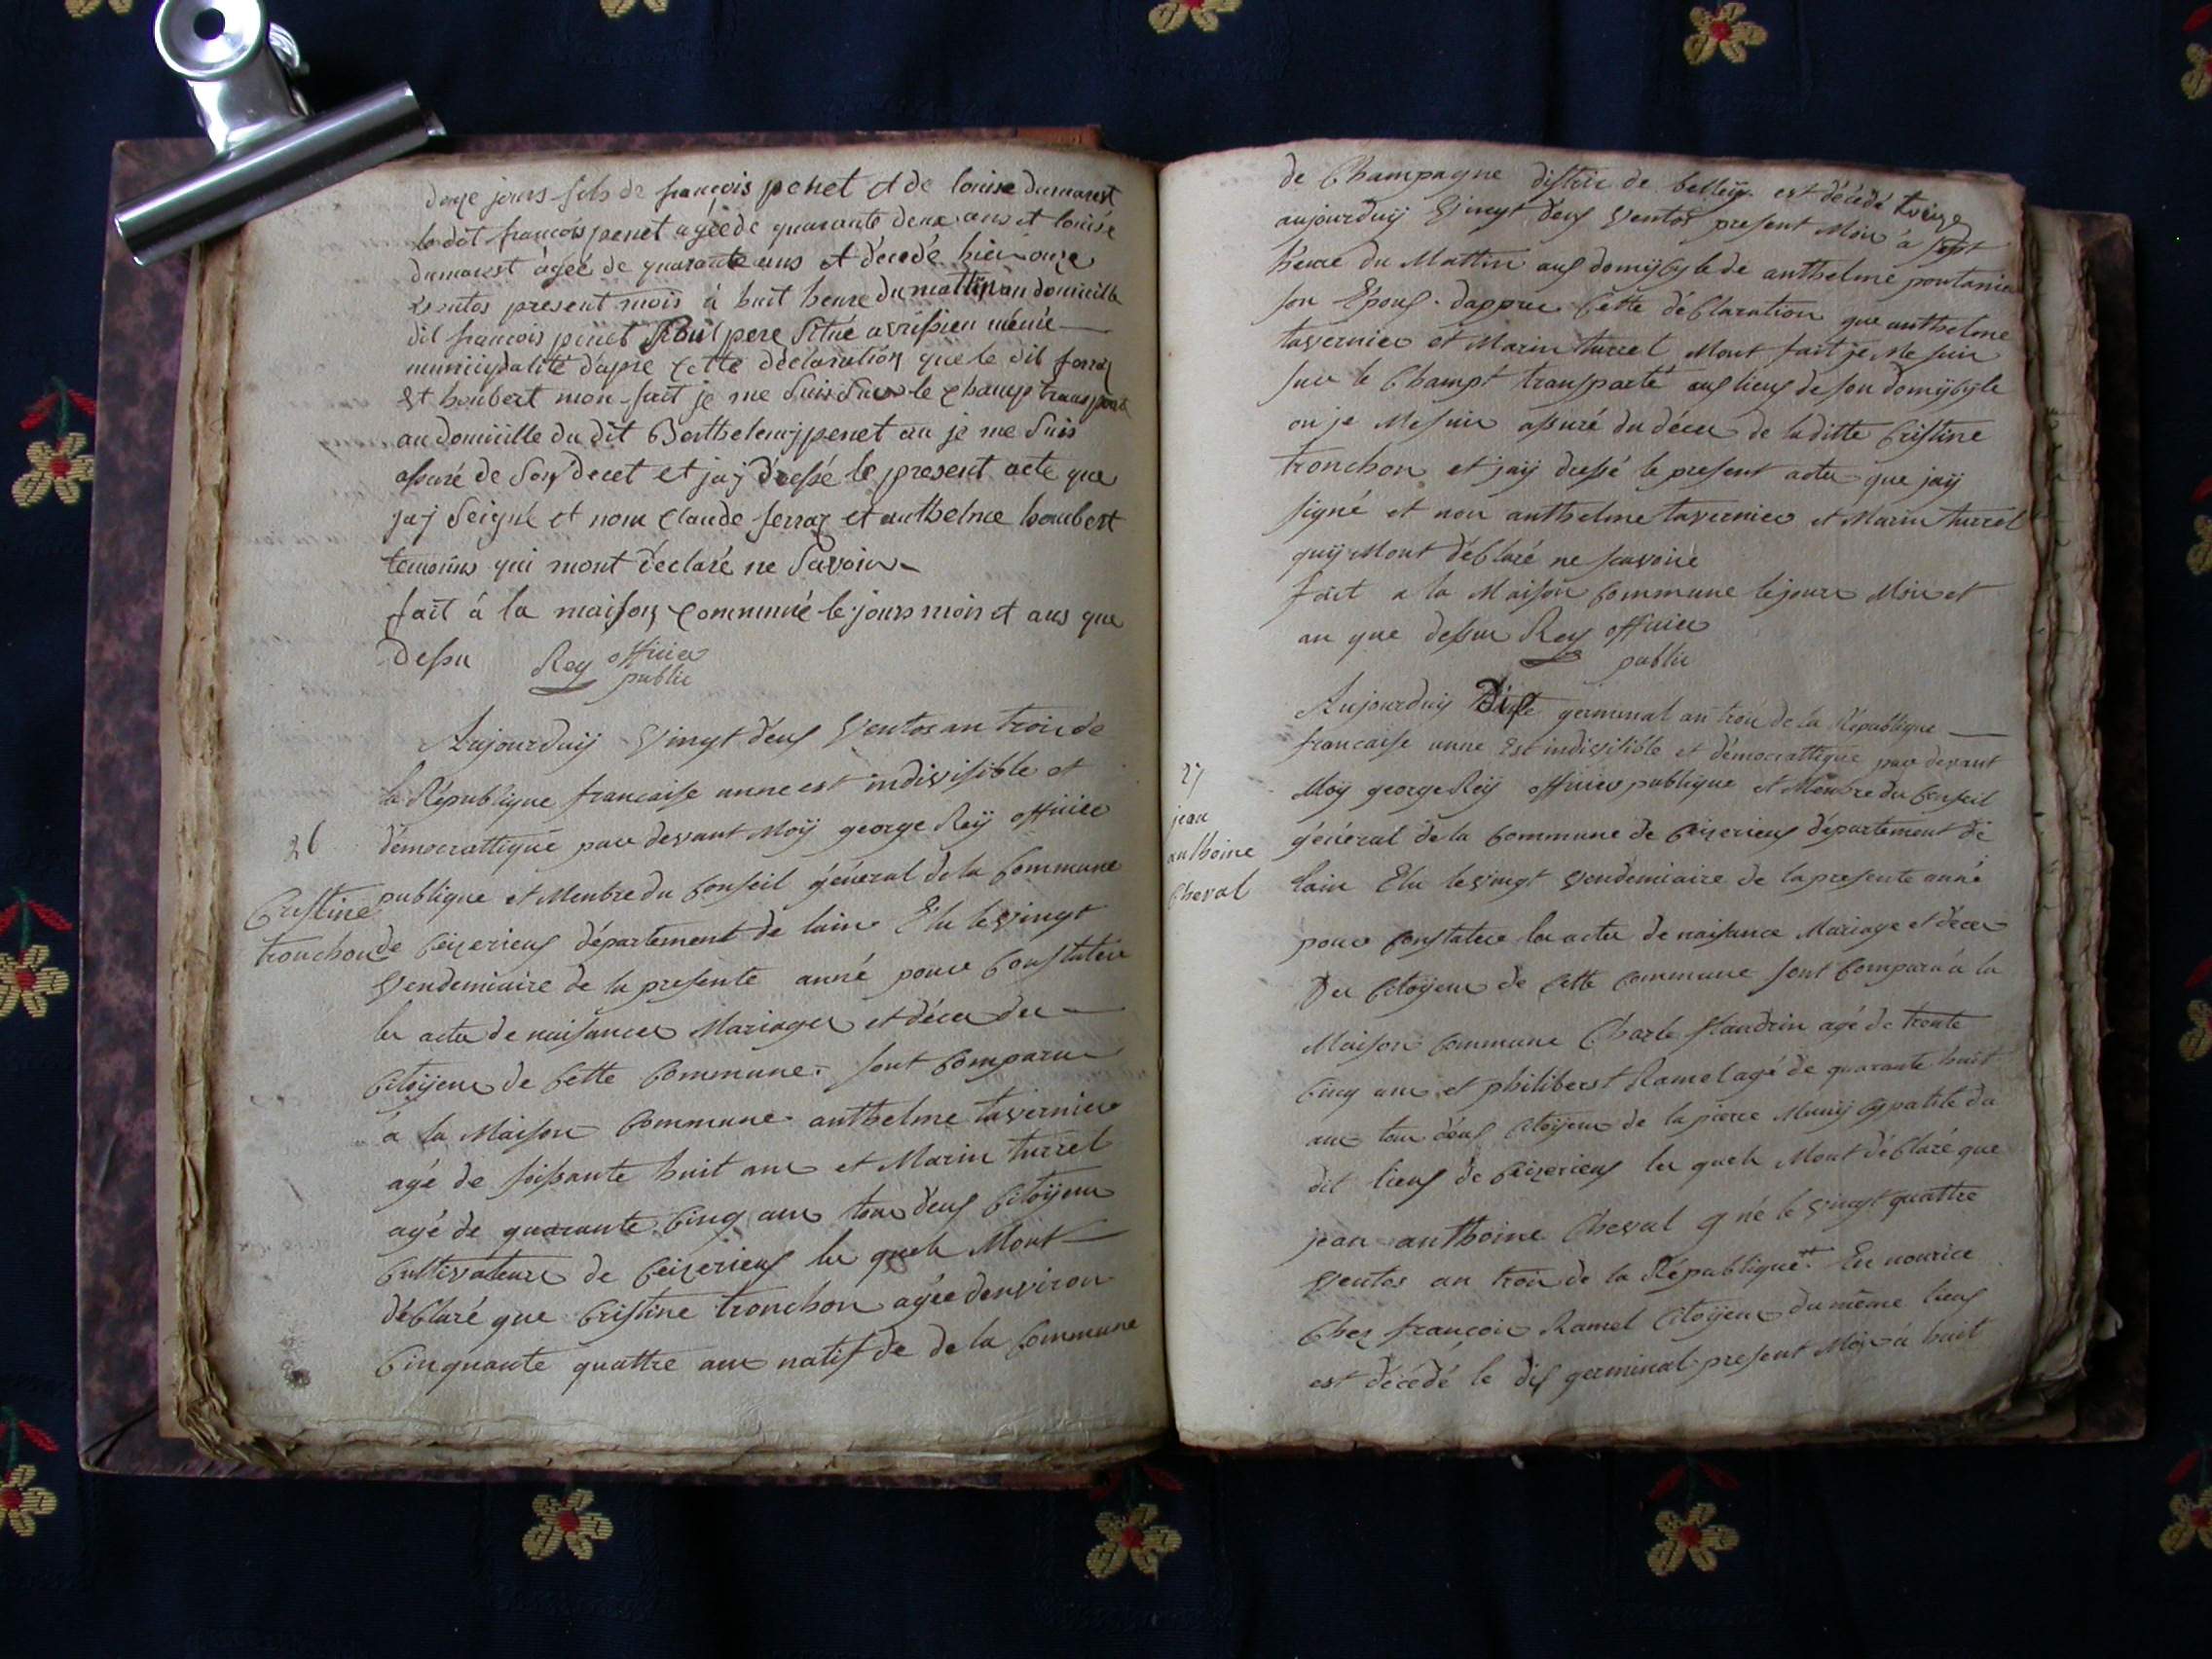 douze jours fils de françois penet et de louise dumarest
le dit françois penet agée de quarante deux ans et louise
dumarest àgée de quarante ans et décédé hier onze
ventos present mois à huit heure du mattin au domicille
dit françois penet son pere situé a virisieu même
municipalité dapre cette déclaration que le dit ferraz
et houbert mon fait je me suis sur le champ transporté
au domicille du dit Berthelemy penet ou je me suis
assuré de son decet et jaj dressé le present acte que
jaj seigné et nom claude ferraz et anthelme houbert
temoins qui mont déclaré ne savoir
fait à la maison commune le jours mois et ans que
dessu Rey officier
public
Aujourduij vingt deux ventos an trois de
la République francaise unne est indivisible et
26
démocrattique par devant Moÿ george Reÿ officier
publique et Menbre du Conseil général de la Commune
Cristine
tronchon
de Ceizerieux département de lain Elu le vingt
vendemiaire de la presente anné pour Constater
les actes de naisances Mariages et déces des
Citoÿens de Cette Commune. sont Comparus
à la Maison Commune anthelme tavernier
agé de soissante huit ans et Marin turrel
agé de quarante Cinq ans tous deux Citoÿens
Cultivateurs de Ceizerieux les quels Mont
déClaré que Cristine tronchon agée denviron
Cinquante quattre ans natif de de la Commune
de Champagne distric de belleÿ est décédé treize
aujourduij vingt deux ventos present Mois à sept
heure du Mattin aux domiçyle de anthelme
son Epoux. dappre Cette déClaration que anthelme
tavernier et Marin turrel Mont fait je Me suis
sur le Champt transporté aux lieux de son domiçyle
ou je Me suis assuré du déces de laditte Cristine
tronchon et jaÿ dressé le present acte que jaÿ
signé et non anthelme tavernier et Marin turrel
quÿ Mont déClaré ne scavoire
fait a la Maison Commune le jour Mois et
an que dessus Rey officier
public
Aujourduij dix germinal an trois de la République
francaise unne Est indivisible et démocrattique par devant
27
jean
anthoine
Cheval
Moÿ george Reÿ officier publique et Menbre du Conseil
général de la Commune de Ceizerieux département de
lain Elu le vingt vendemiaire de la presente anné
pour Constater les actes de naisance Mariage et déces
Des Citoÿens de Cette Commune sont Comparu à la
Maison Commune Charle flandrin agé de trente
Cinq ans et philiberst Ramel agé de quarante huit
ans tous deux Citoÿens de la pierre du
dit lieux de Ceizerieux les quels Mont déClaré que
jean anthoine Cheval né le vingt quattre
ventos an trois de la République En nourice
Chez françois Ramel Citoÿen du même lieux
est décédé le dix germinal present Mois à huit